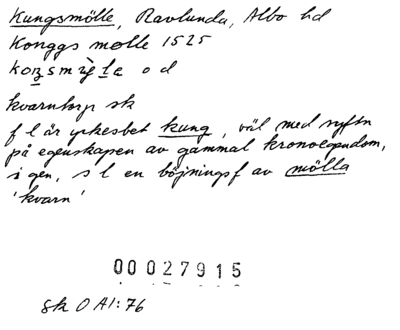 Kungsmölle, Ravlunda, Albo hd
Konggs molle 1525
koŋsmỳlе o d
kvarntorp sk
f l är yrkesbet kung, väl med syftn
på egenskapen av gammal kronoegendom,
i gen, s l en böjningsf av mölla
'kvarn'
00027915
sk O A1:76